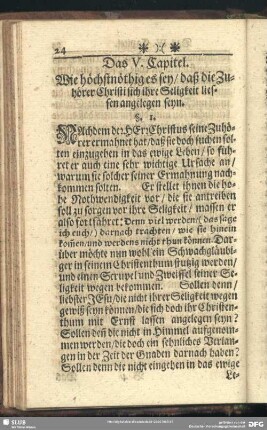 24
Das V. Capitel.
Wie höchstnöthig es sey / daß die Zu-
hörer Christi sich ihre Seligkeit lies-
sen angelegen seyn.
§. 1.
Nachdem der HErr Christus seine Zuhö-
rer ermahnet hat / daß sie doch suchen sol-
ten einzugehen in das ewige Leben / so füh-
ret er auch eine sehr wichtige Ursache an /
warum sie solcher seiner Ermahnung nach-
kommen solten. Er stellet ihnen die ho-
he Nothwendigkeit vor / die sie antreiben
soll zu sorgen vor ihre Seligkeit / massen er
also fortfähret: Denn viel werden / das sage
ich euch / darnach trachten / wie sie hinein
kommen / und werdens nicht thun können. Dar-
über möchte nun wohl ein Schwachgläubi-
ger in seinem Christenthum stutzig werden /
und einen Scrupel und Zweiffel seiner Se-
ligkeit wegen bekommen. Sollen denn /
liebster JEsu / die nicht ihrer Seligkeit wegen
gewiß seyn können / die sich doch ihr Christen-
thum mit Ernst lassen angelegen seyn?
Sollen deñ die nicht in Himmel aufgenom-
men werden / die doch ein sehnliches Verlan-
gen in der Zeit der Gnaden darnach haben?
Sollen denn die nicht eingehen in das ewige
Le-
SLUB
DFG